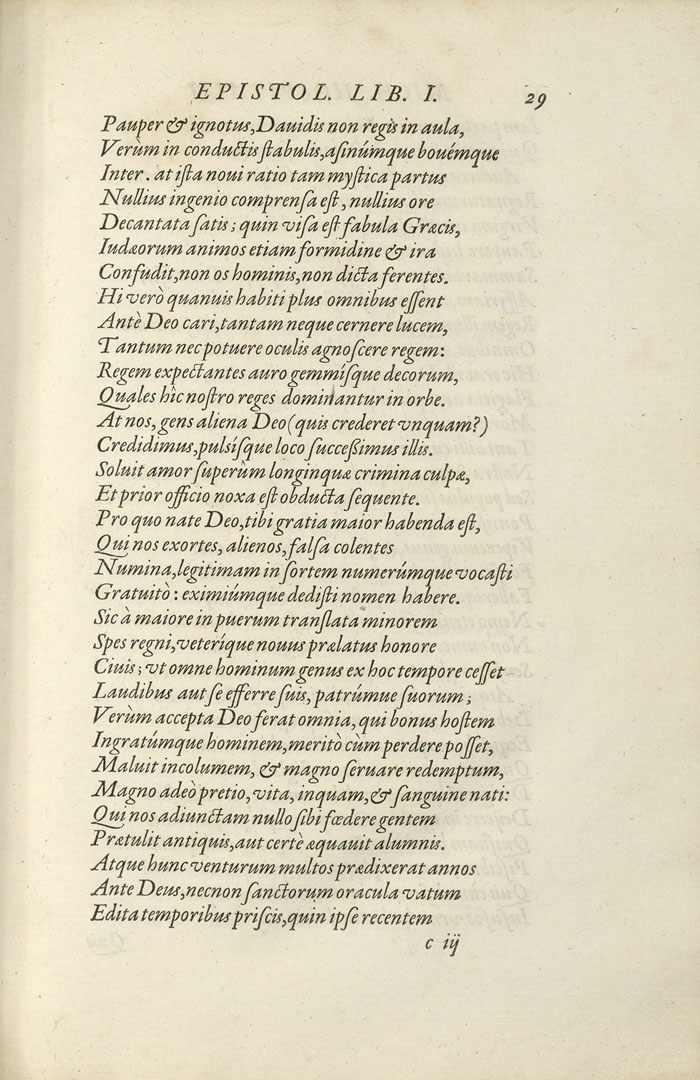 EPISTOL. LIB. I. 29
Pauper & ignotus, Dauidis non regis in aula,
Verùm in conductis stabulis, asinúmque bouémque
Inter. at ista noui ratio tam mystica partus
Nullius ingenio comprensa est, nullius ore
Decantata satis; quin visa est fabula Græcis,
Iudæorum animos etiam formidine & ira
Confudit, non os hominis, non dicta ferentes.
Hi verò quanuis habiti plus omnibus essent
Antè Deo cari, tantam neque cernere lucem,
Tantum nec potuere oculis agnoscere regem:
Regem expectantes auro gemmísque decorum,
Quales hîc nostro reges dominantur in orbe.
At nos, gens aliena Deo (quis crederet vnquam?)
Credidimus, pulsísque loco successimus illis.
Soluit amor superûm longinquæ crimina culpæ,
Et prior officio noxa est obducta sequente.
Pro quo nate Deo, tibi gratia maior habenda est,
Qui nos exortes, alienos, falsa colentes
Numina, legitimam in sortem numerúmque vocasti
Gratuitò: eximiúmque dedisti nomen habere.
Sic à maiore in puerum translata minorem
Spes regni, veteríque nouus prælatus honore
Ciuis; vt omne hominum genus ex hoc tempore cesset
Laudibus aut se efferre suis, patrúmue suorum;
Verùm accepta Deo ferat omnia, qui bonus hostem
Ingratúmque hominem, meritò cùm perdere posset,
Maluit incolumem, & magno seruare redemptum,
Magno adeò pretio, vita, inquam, & sanguine nati:
Qui nos adiunctam nullo sibi fœdere gentem
Prætulit antiquis, aut certè æquauit alumnis.
Atque hunc venturum multos prædixerat annos
Ante Deus, necnon sanctorum oracula vatum
Edita temporibus priscis, quin ipse recentem
c iij